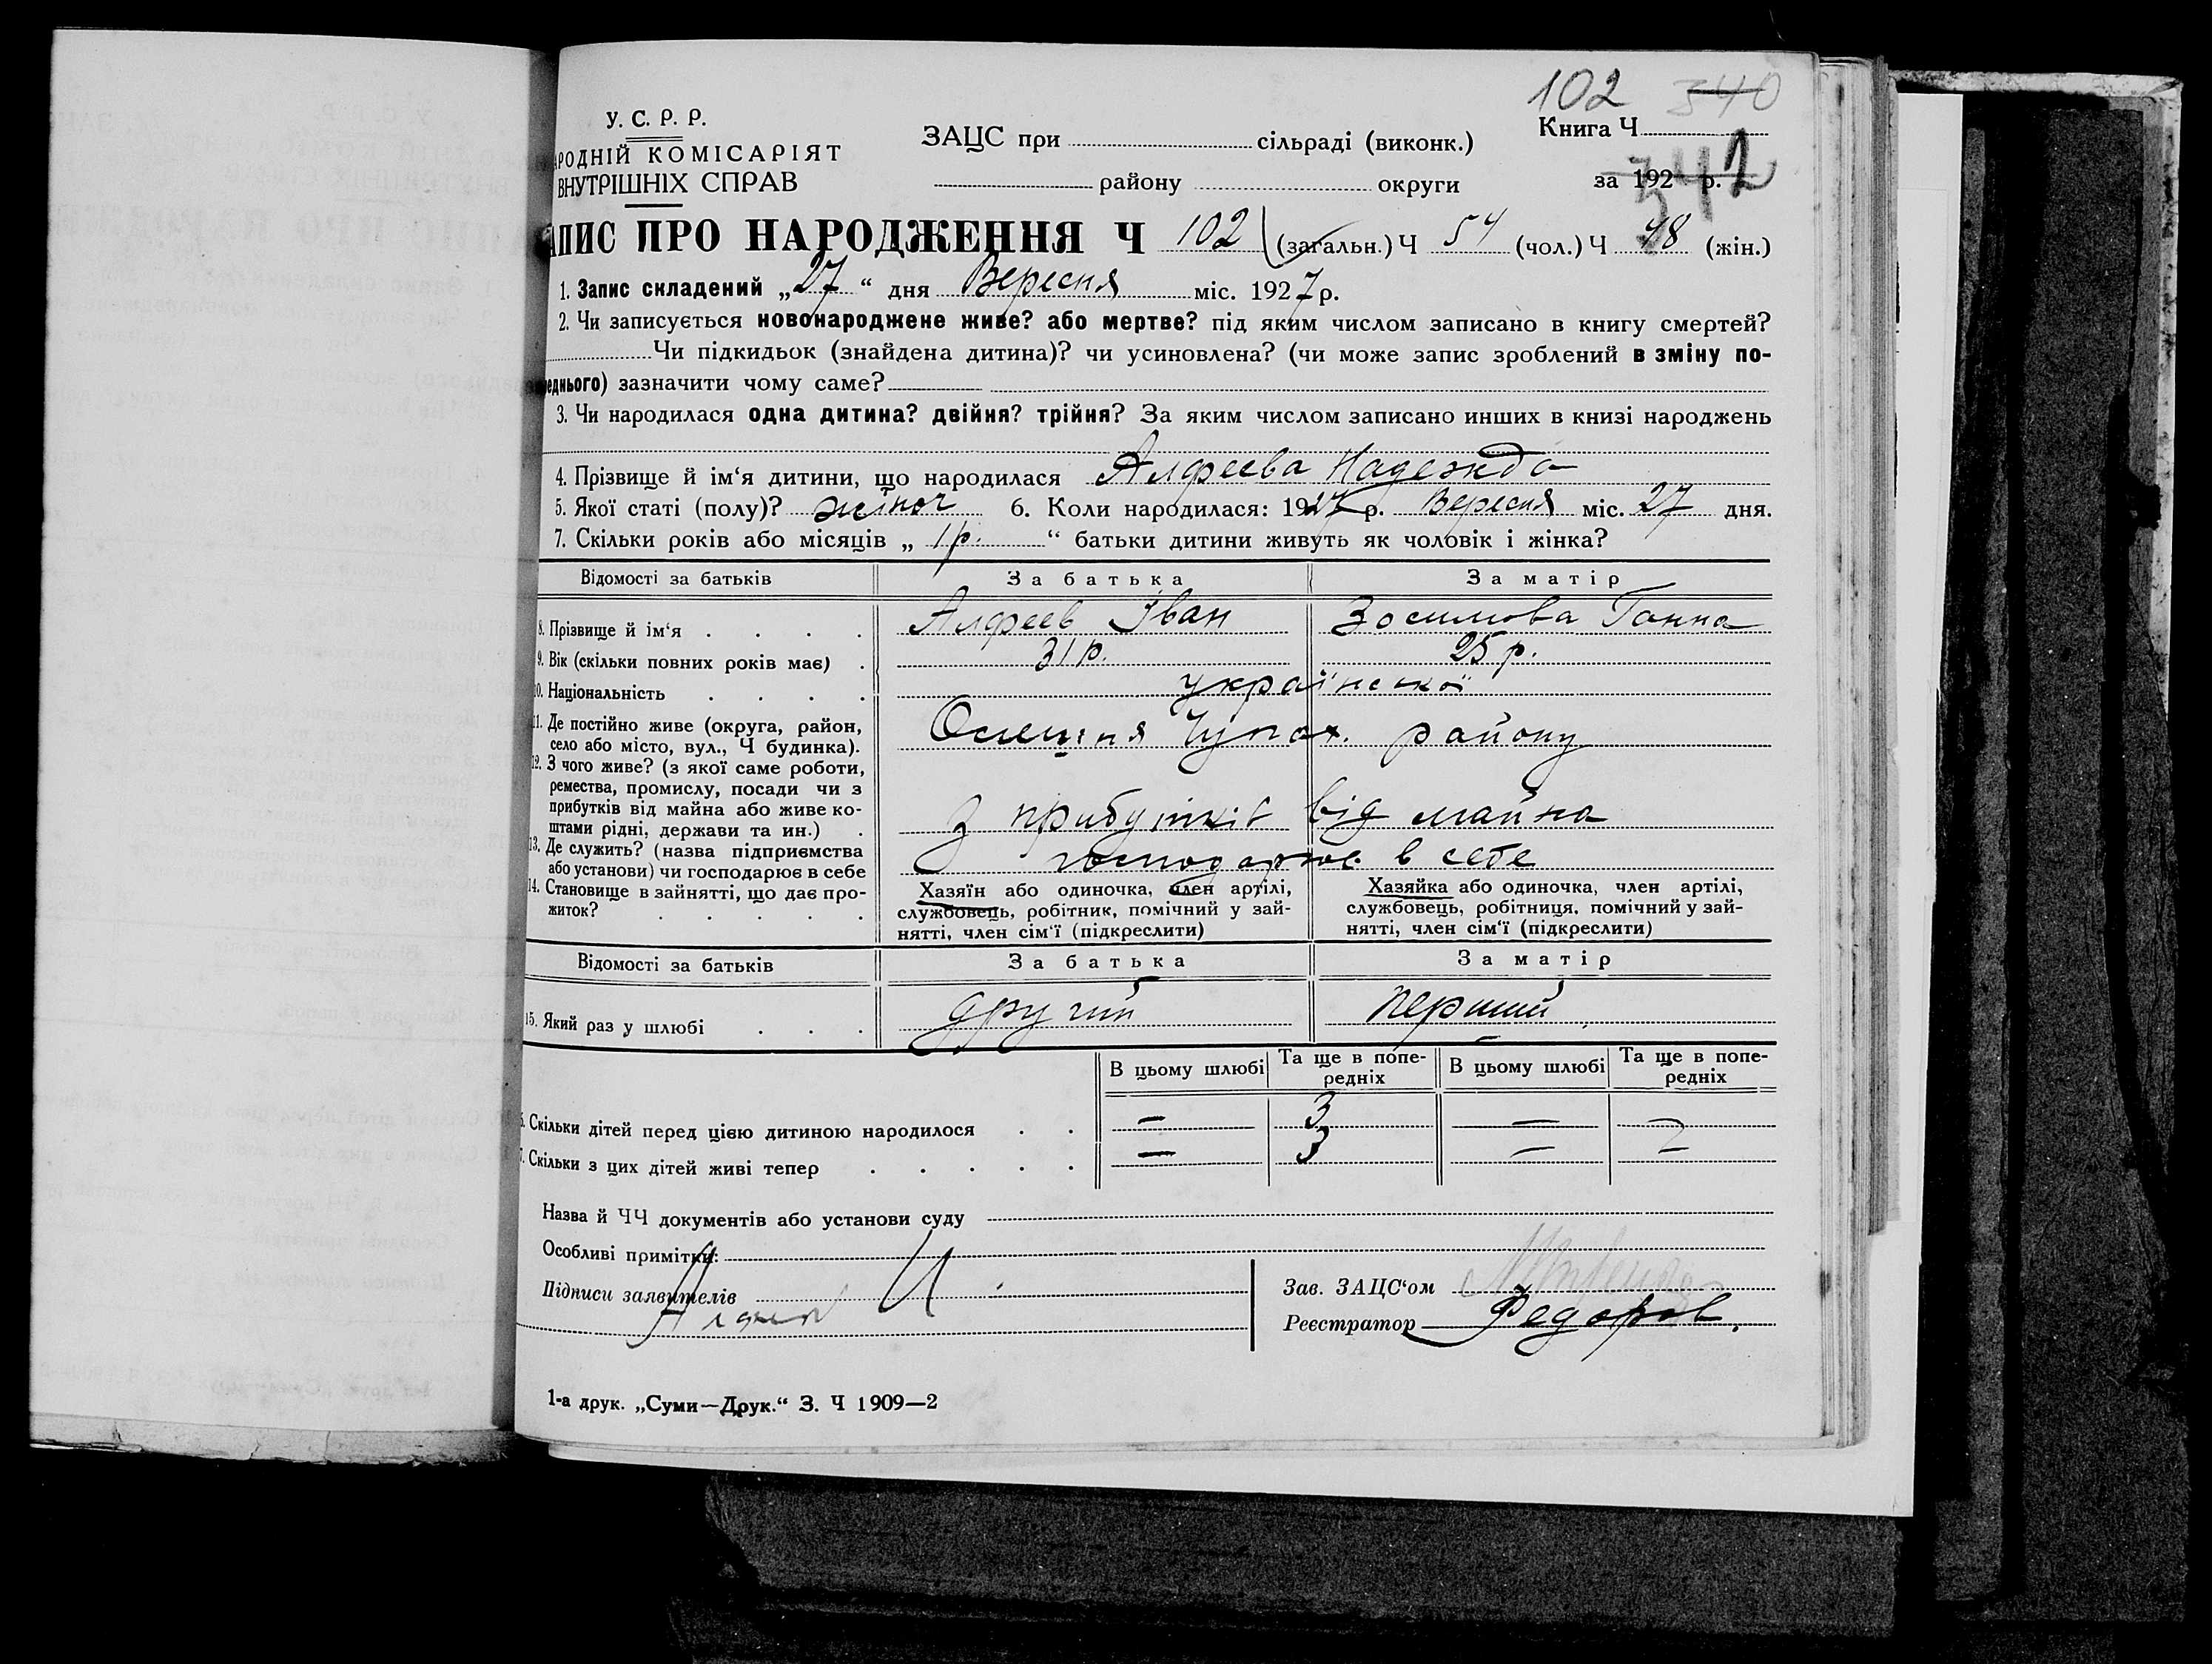 102 340
У. С. Р. Р.
АРОДНІЙ КОМІСАРІЯТ
ВНУТРІШНІХ СПРАВ
ЗАЦС при сільраді (виконк.)
району округи
Книга Ч
342
за 192 р.
АПИС ПРО НАРОДЖЕННЯ Ч 102 (загальн.) Ч 54 (чол.) Ч 48 (жін.)
1. Запис складений „27“ дня Вересня міс. 1927 р.
2. Чи записується новонароджене живе? або мертве? під яким числом записано в книгу смертей?
Чи підкидьок (знайдена дитина)? чи усиновлена? (чи може запис зроблений в зміну по-
еднього) зазначити чому саме?
3. Чи народилася одна дитина? двійня? трійня? За яким числом записано инших в книзі народжень
4. Прізвище й ім‘я дитини, що народилася Алфеева Надежда
5. Якої статі (полу)? жіноч 6. Коли народилася: 1927 р. Вересня міс. 27 дня.
7. Скільки років або місяців „ 1 р. “ батьки дитини живуть як чоловік і жінка?
Відомості за батьків За батька За матір
8. Прізвище й ім‘я Алфеев Іван Зосимова Ганна
9. Вік (скільки повних років має) 31 р. 25 р.
10. Національність української
11. Де постійно живе (округа, район,
село або місто, вул., Ч будинка). Олешня Чупах. району
12. З чого живе? (з якої саме роботи,
ремества, промислу, посади чи з
прибутків від майна або живе ко-
штами рідні, держави та ин.) З прибутків від майна
13. Де служить? (назва підприємства
або установи) чи господарює в себе господарює в себе
14. Становище в зайнятті, що дає про-
житок?
Хазяїн або одиночка, член артілі,
службовець, робітник, помічний у зай-
нятті, член сім‘ї (підкреслити)
Хазяйка або одиночка, член артілі,
службовець, робітниця, помічний у зай-
нятті, член сім‘ї (підкреслити)
Відомості за батьків За батька За матір
15. Який раз у шлюбі другий перший
В цьому шлюбі Та ще в попе-
редніх В цьому шлюбі Та ще в попе-
редніх
6. Скільки дітей перед цією дитиною народилося — 3 — —
7. Скільки з цих дітей живі тепер — 3 — —
Назва й ЧЧ документів або установи суду
Особливі примітки:
Підписи заявителів
Зав. ЗАЦС‘ом
Реєстратор Федоров.
1-а друк. „Суми—Друк.“ З. Ч 1909—2